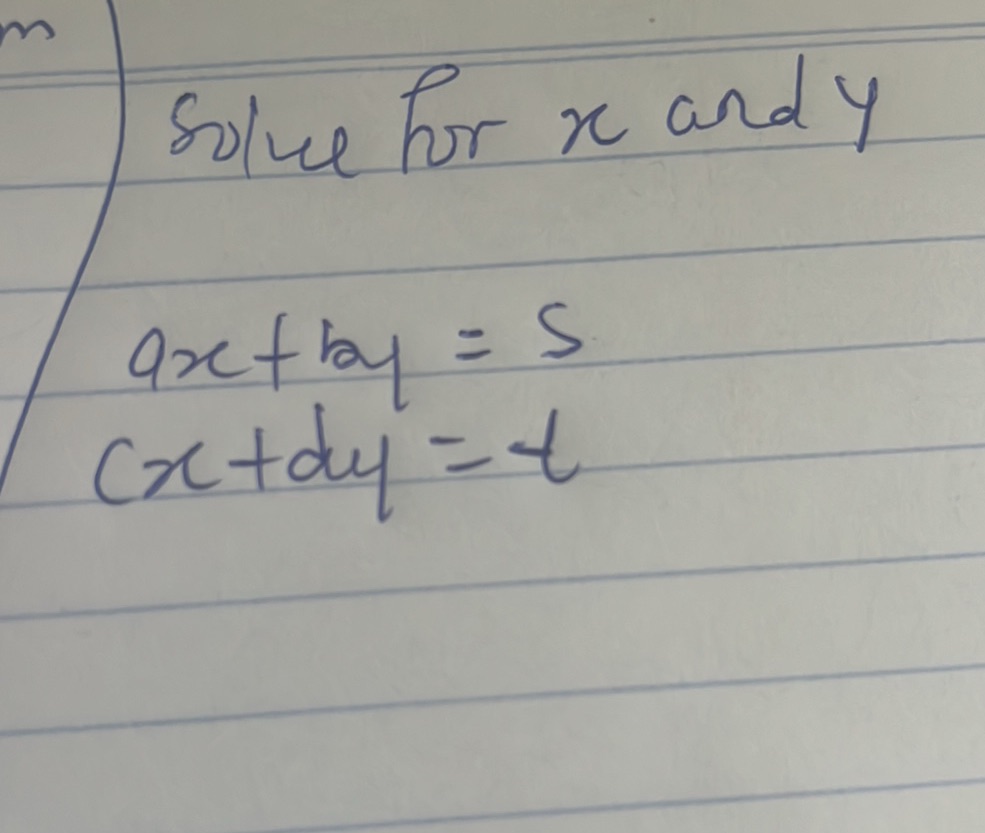 m
Solve for x and y
ax+by = s
cx+dy = t